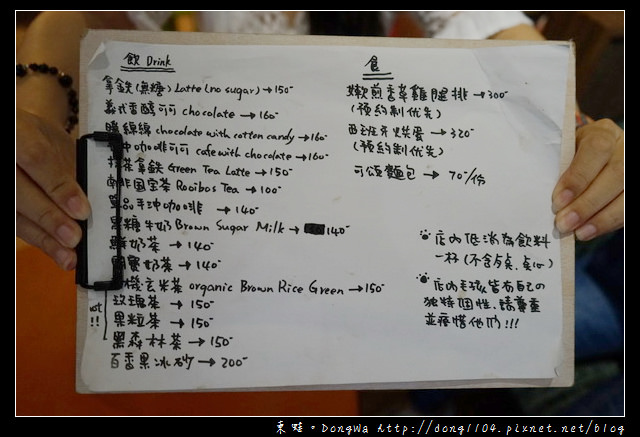 飲 Drink
拿鐵(無糖) Latte (no sugar) → 150
義式香醇可可 chocolate → 160
chocolate with cotton candy → 160
咖啡可可 cafe with chocolate → 160
抹茶拿鐵 Green Tea Latte → 150
南非国宝茶 Rooibos Tea → 100
單品手沖咖啡 → 140
黑糖牛奶 Brown Sugar Milk → 140
鮮奶茶 → 140
奶茶 → 140
玄米茶 organic Brown Rice Green → 150
玫瑰茶 → 150
果粒茶 → 150
黑森林茶 → 150
百香果冰砂 → 200
!!
食
嫩煎香草雞腿排 → 300
(預約制优先)
西班牙烘蛋 → 320
(預約制优先)
可頌麵包 → 70/份
店內低消為飲料
一杯(不含 点心)
店內 皆有自己の
独特個性,請尊重
並疼惜他們!!!
東蛙。Dongwa http://dong1104.pixnet.net/blog